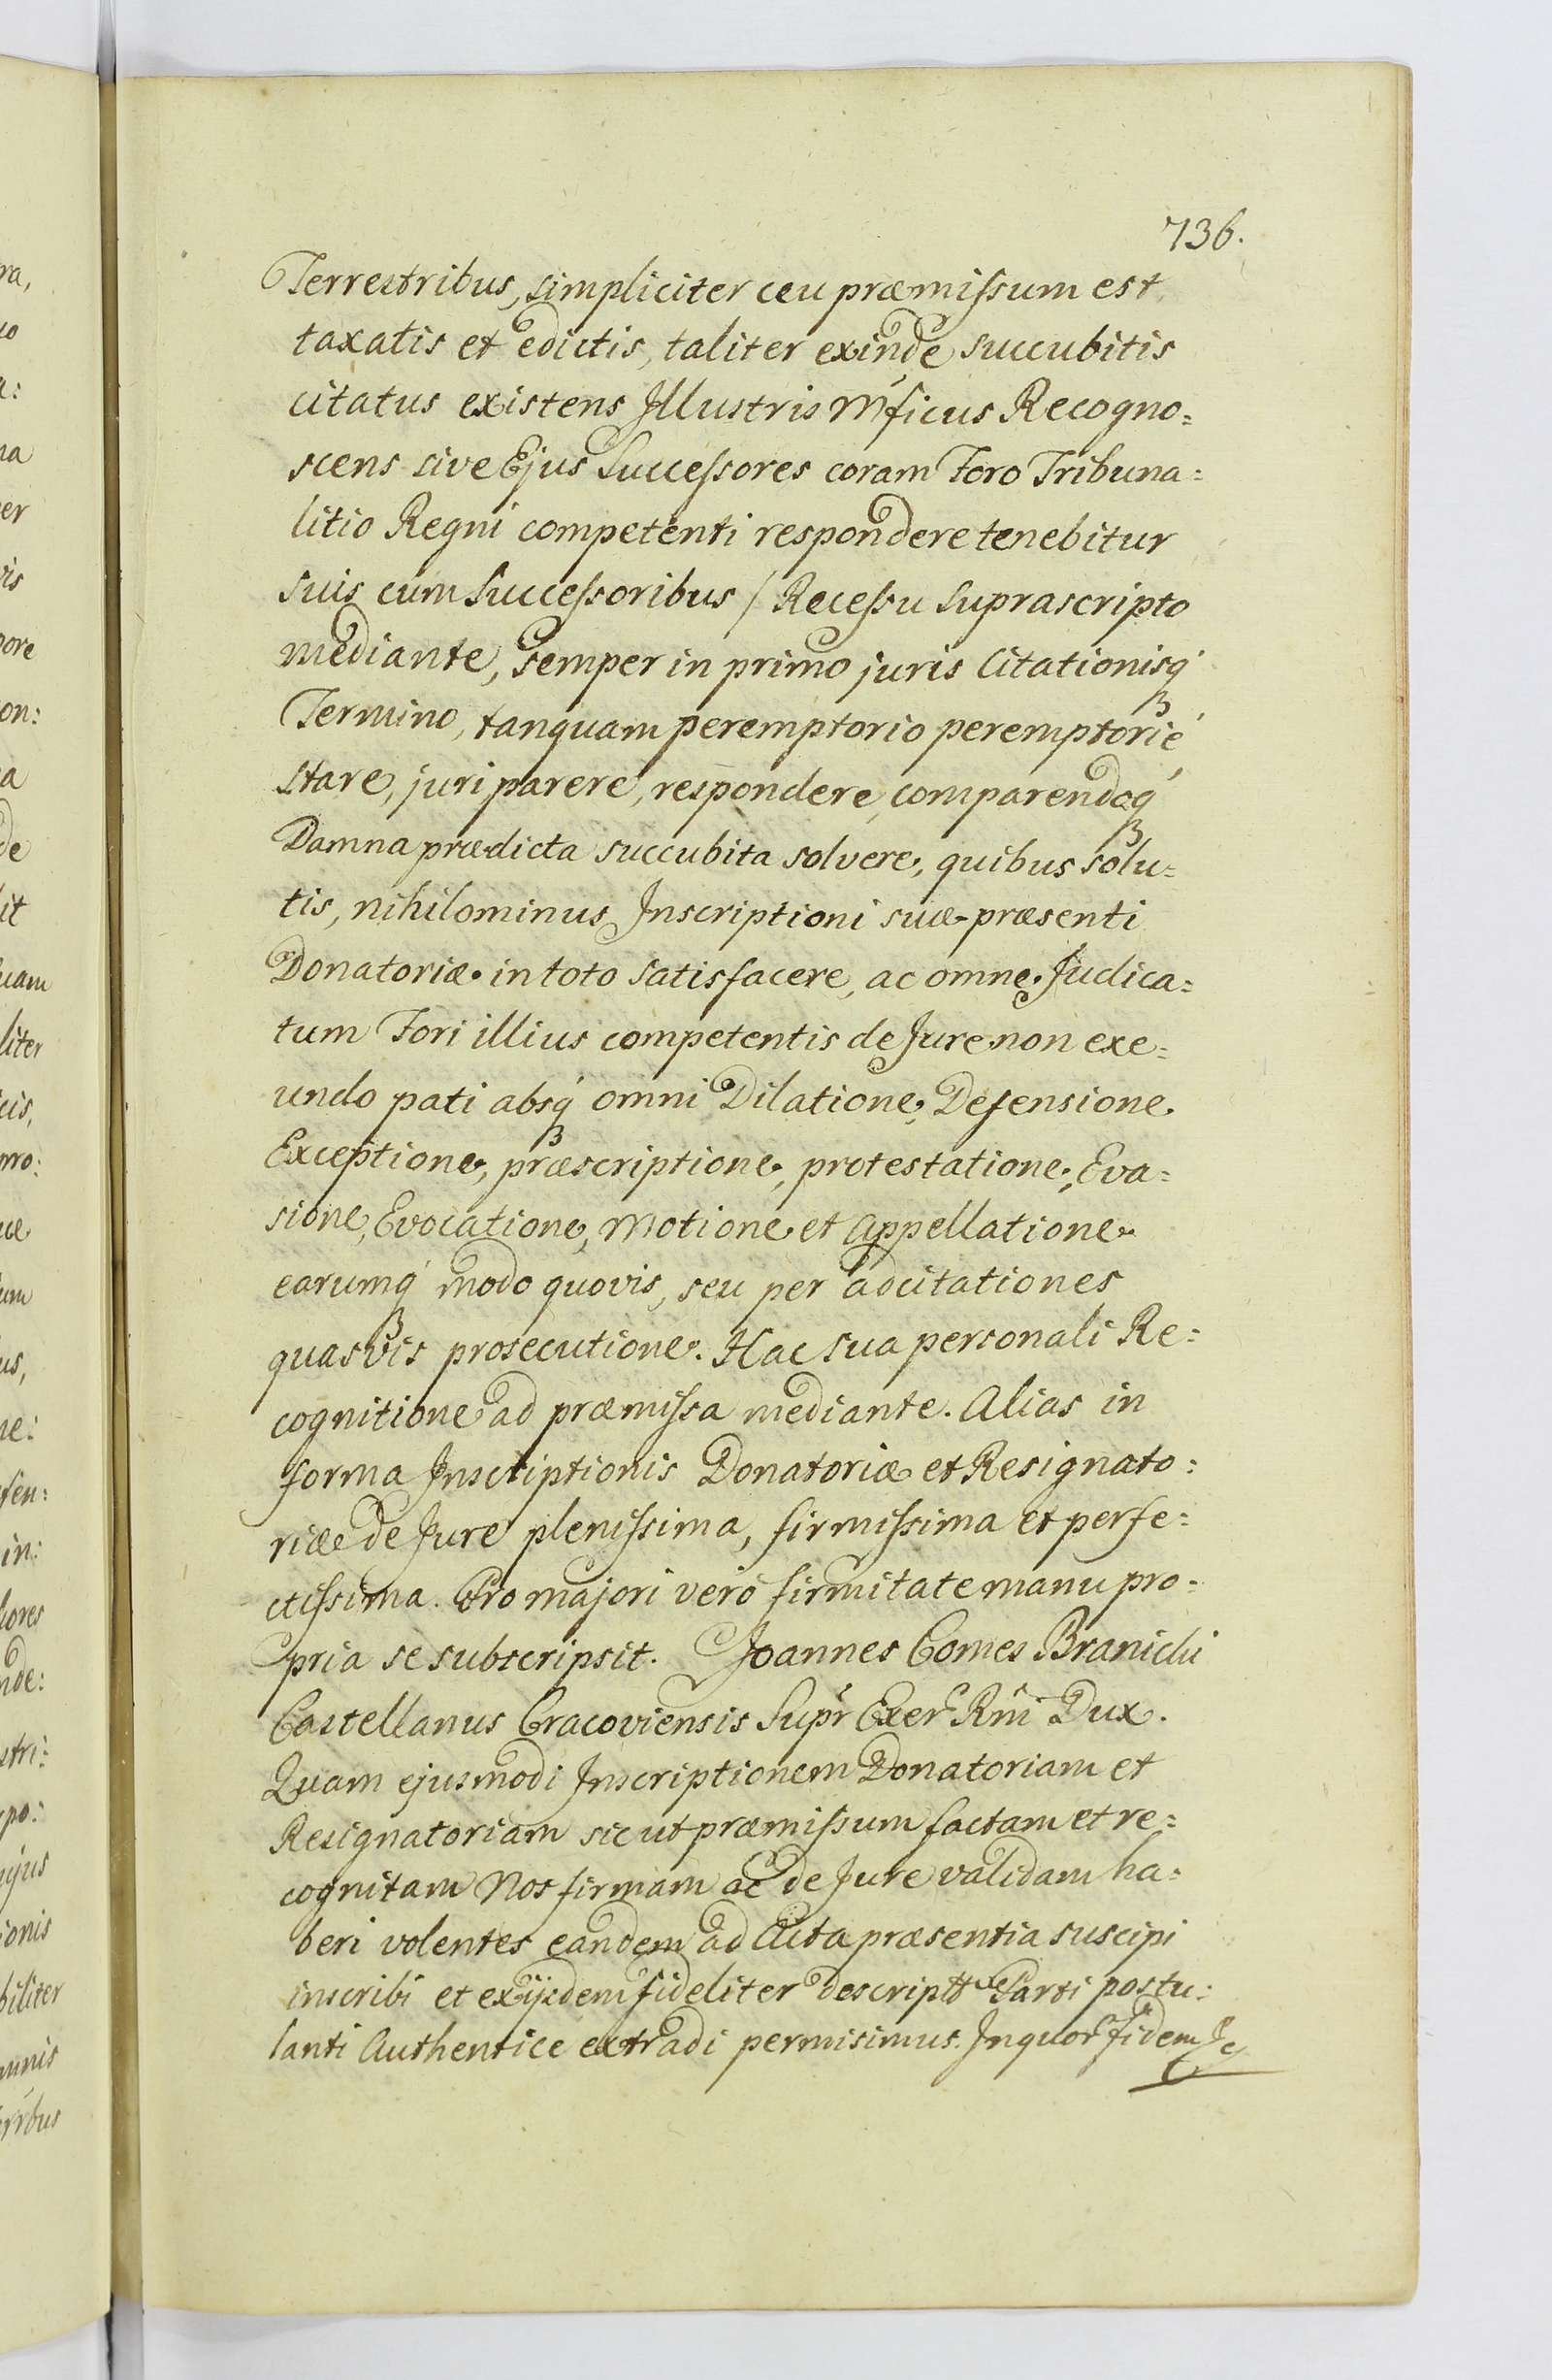 736.
Terrestribus, simpliciter ceu præmissum est
taxatis et edictis, taliter exinde succubitis
citatus existens Illustris Mficus Recogno=
scens sive Ejus Successores coram Foro Tribuna=
litio Regni competenti respondere tenebitur
suis cum Successoribus / Recessu suprascripto
mediante, semper in primo juris Citationisq́ꝫ
Termino, tanquam peremptorio peremptorié,
stare, juri parere, respondere, comparendoq́ꝫ
Damna prædicta succubita solvere, quibus solu=
tis, nihilominus Inscriptioni suæ præsenti
Donatoriæ in toto satisfacere, ac omne Judica=
tum Fori illius competentis de Jure non exe=
undo pati absq́ꝫ omni Dilatione, Defensione
Exceptione, præscriptione, protestatione, Eva=
sione, Evocatione, Motione et Appellatione
earumq́ꝫ modo quovis, seu per adcitationes
quasvis prosecutione. Hac sua personali Re=
cognitione ad præmissa mediante. Alias in
forma Inscriptionis Donatoriæ et Resignato=
riæ de Jure plenissima, firmissima et perfe=
ctissima. Pro majori veró firmitate manu pro=
pria se subscripsit. Joannes Comes Branicki
Castellanus Cracoviensis Supr Exer Rni Dux.
Quam ejusmodi Inscriptionem Donatoriam et
Resignatoriam sicut præmissum factam et re=
cognitam Nos firmam ac de Jure validam ha=
beri volentes eandem ad Acta præsentia suscipi
inscribi et ex ijsdem fideliter descriptt Parti postu=
lanti Authentice extradi permisimus. In quor fidem